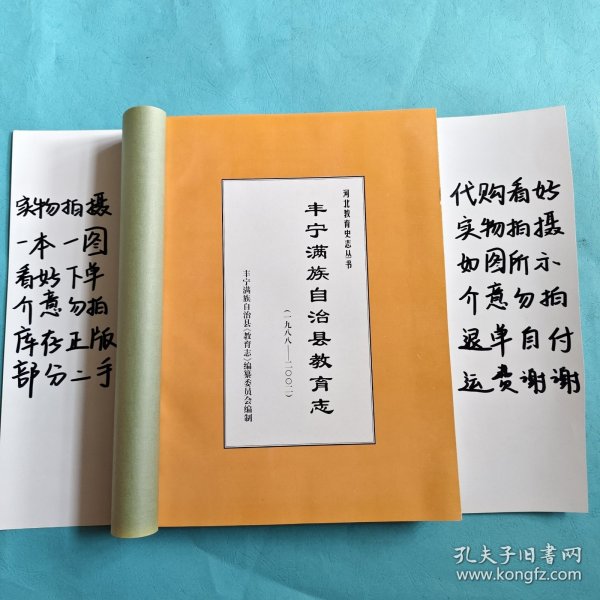 实物拍摄
一本一图
看好下单
介意勿拍
库存正版
部分二手
河北教育史志丛书
丰宁满族自治县教育志
(一九八八——二〇〇二)
丰宁满族自治县《教育志》编纂委员会编制
代购看好
实物拍摄
如图所示
介意勿拍
退单自付
运费谢谢
孔夫子旧书网
www.kongfz.com